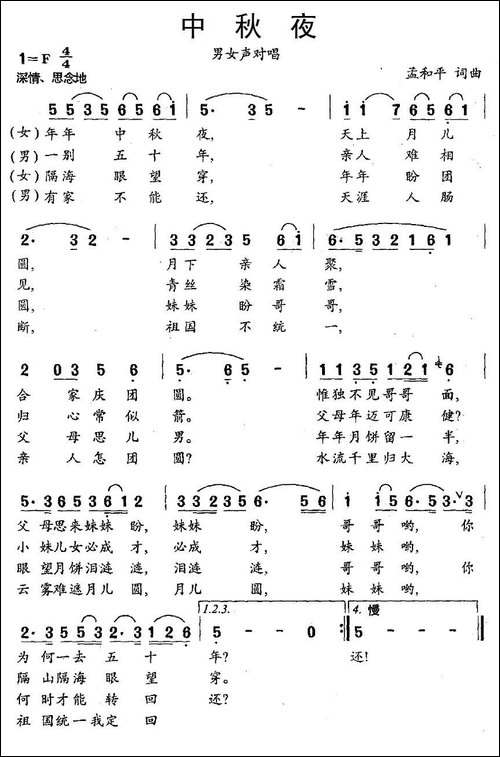 中秋夜
男女声对唱
1=F 4/4
深情、思念地
孟和平 词曲
5 5 3 5 6 5 6 1 | 5· 3 5 - | 1 1 7 6 5 6 1 |
(女)年年 中秋 夜, 天上 月儿
(男)一别 五十 年, 亲人 难相
(女)隔海 眼望 穿, 年年 盼团
(男)有家 不能 还, 天涯 人肠
2· 3 2 - | 3 3 2 3 5 6 1 | 6· 5 3 2 1 6 1 |
圆, 月下 亲人 聚,
见, 青丝 染霜 雪,
圆, 妹妹 盼哥 哥,
断, 祖国 不统 一,
2 0 3 5 6 | 5· 6 5 - | 1 1 3 5 1 2 1 6 |
合家庆团 圆。 惟独不见哥哥 面,
归心常似 箭。 父母年迈可康 健?
父母思儿 男。 年年月饼留一 半,
亲人怎团 圆? 水流千里归大 海,
5· 3 6 5 3 6 1 2 | 3 2 3 5 6· 5 6 | 1 1 5 6 5 3· 3
父母思来妹妹 盼, 妹妹 盼, 哥哥 哟, 你
小妹儿女必成 才, 必成 才, 妹妹 哟,
眼望月饼泪涟 涟, 泪涟 涟, 哥哥 哟, 你
云雾难遮月儿 圆, 月儿 圆, 妹妹 哟,
1.2.3. 4. 慢
2· 3 5 5 3 2· 3 1 2 2 6 | 5 - - 0 :| 5 - - - ||
为何一去五十 年? 还!
隔山隔海眼望 穿。
何时才能转回 还?
祖国统一我定回